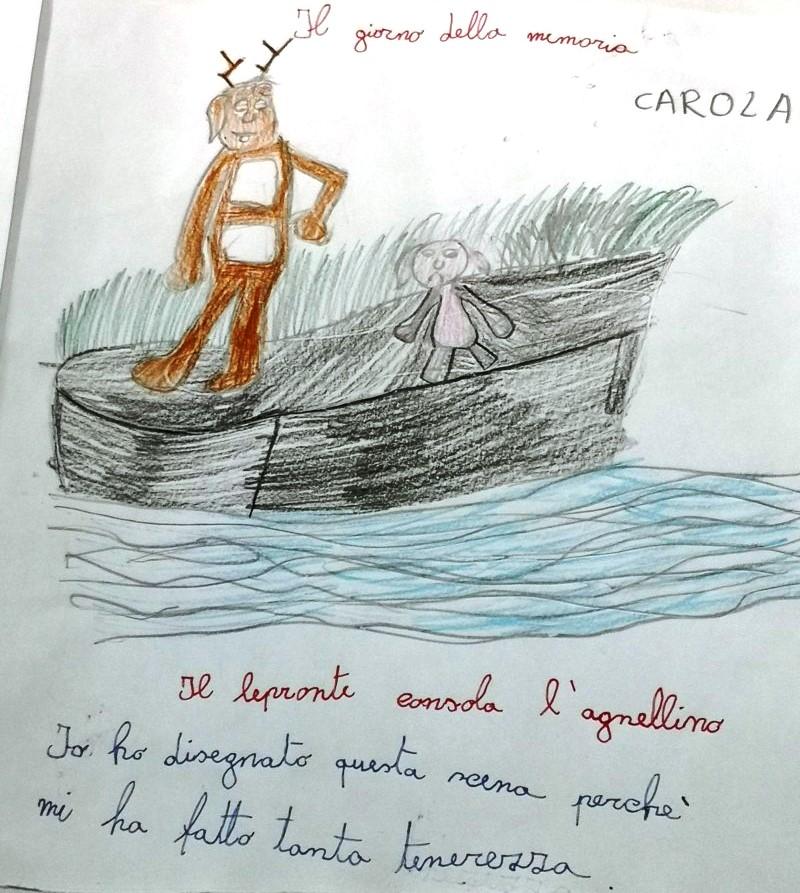 Il giorno della memoria
CAROLA
Il lepronte consola l'agnellino
Io ho disegnato questa scena perchè
mi ha fatto tanta tenerezza.